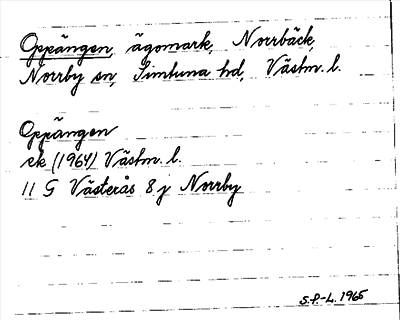 Oppängen, ägomark, Norrbäck,
Norrby sn, Simtuna hd, Västm. l.
Oppängen
ek (1964) Västm. l.
11 G Västerås 8 j Norrby
S.P-L. 1965